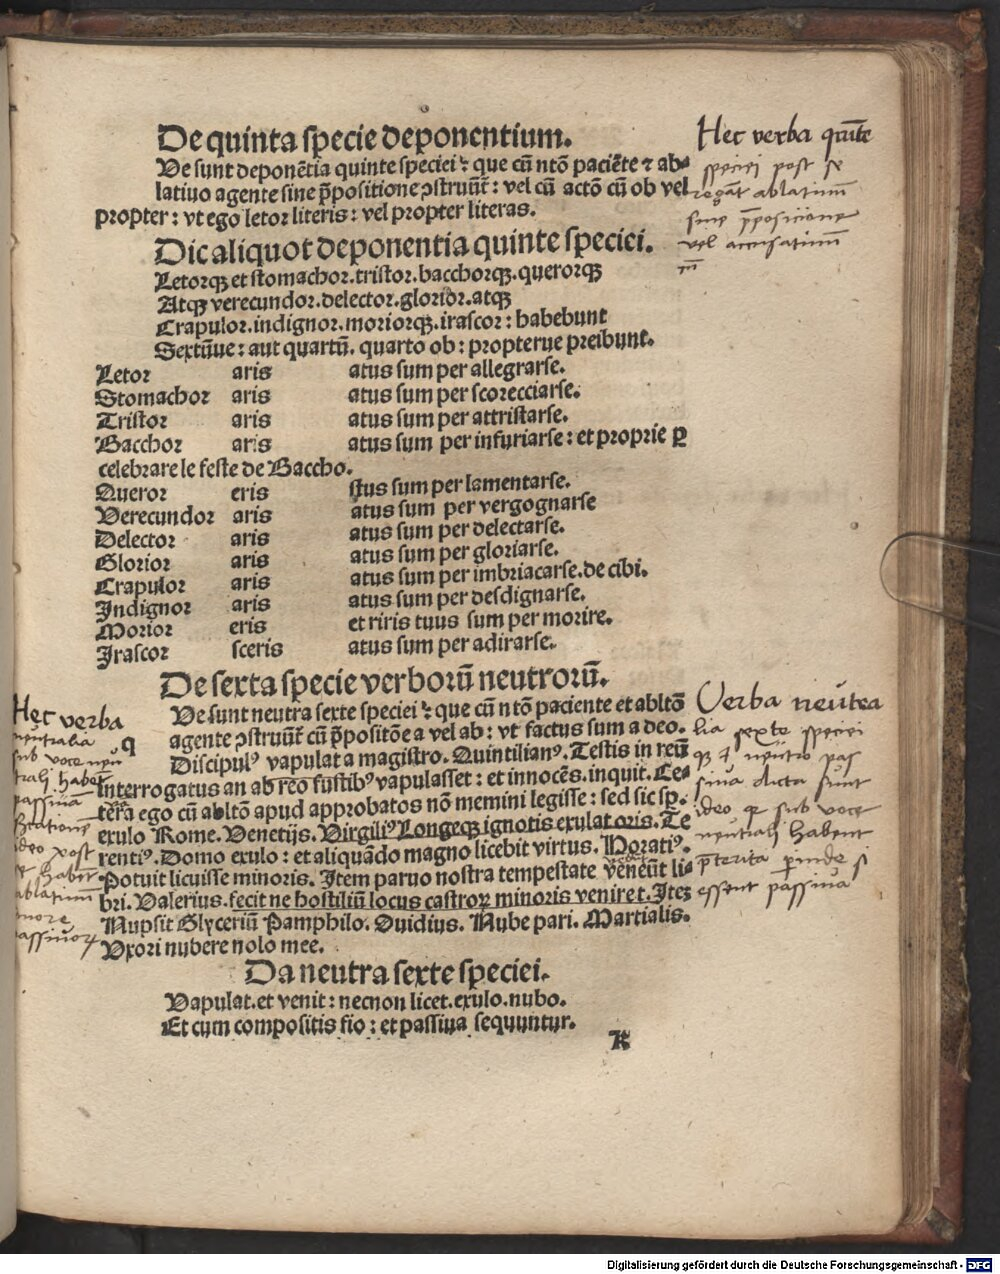 De quinta specie deponentium.
Ve sunt deponētia quinte speciei: que cū ntō paciēte ⁊ ab-
latiuo agente sine p̄positione ↄstruūt: vel cū actō cū ob vel
propter: vt ego letor literis: vel propter literas.
Dic aliquot deponentia quinte speciei.
Letorqꝫ et stomachor. tristor. bacchorqꝫ. querorqꝫ
Atqꝫ verecundor. delector. glorior. atqꝫ
Crapulor. indignor. moriorqꝫ. irascor: habebunt
Sextūue: aut quartū. quarto ob: propterue preibunt.
Letor aris atus sum per allegrarse.
Stomachor aris atus sum per scorecciarse.
Tristor aris atus sum per attristarse.
Bacchor aris atus sum per infuriarse: et proprie ꝑ
celebrare le feste de Baccho.
Queror eris stus sum per lamentarse.
Verecundor aris atus sum per vergognarse
Delector aris atus sum per delectarse.
Glorior aris atus sum per gloriarse.
Crapulor aris atus sum per imbriacarse. de cibi.
Indignor aris atus sum per desdignarse.
Morior eris et riris tuus sum per morire.
Irascor sceris atus sum per adirarse.
De sexta specie verborū neutrorū.
Ve sunt neutra sexte speciei: que cū ntō paciente et abltō
q agente ↄstruūt cū p̄positōe a vel ab: vt factus sum a deo.
Discipulꝰ vapulat a magistro. Quintilianꝰ. Testis in reū
interrogatus an ab reo fustibꝰ vapulasset: et innocēs. inquit. Ce-
tera ego cū abltō apud approbatos nō memini legisse: sed sic sp̄.
exulo Rome. Venetijs. Virgiliꝰ Longeqꝫ ignotis exulat oris. Te
rentiꝰ. Domo exulo: et aliquādo magno licebit virtus. Horatiꝰ.
Potuit licuisse minoris. Item paruo nostra tempestate veneūt li-
bri. Valerius. fecit ne hostiliū locus castroꝝ minoris veniret. Iteꝫ
Nupsit Glyceriū Pamphilo. Ouidius. Nube pari. Martialis.
Vxori nubere nolo mee.
Da neutra sexte speciei.
Vapulat. et venit: necnon licet. exulo. nubo.
Et cum compositis fio: et passiua sequuntur.
K
Hec verba quīte
speciei post se
regāt ablatiuū
sine p̄posicione
vel accusatiuū
Hec verba
neutralia
sub voce neu
trali habēt
ideo post
se habēt
ablatiuū
more
passiuoꝝ
Verba neutra
lia sexte speciei
neutro pas
siua dicta sunt
ideo qꝫ sub voce
neutrali habent
p̄terita ꝑinde si
essent passiua
Digitalisierung gefördert durch die Deutsche Forschungsgemeinschaft - DFG